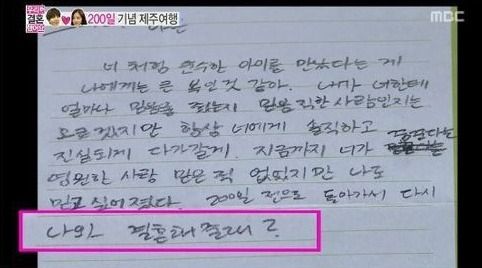 우리 결혼했어요
200일 기념 제주여행
MBC
너처럼 순수한 아이를 만났다는 게
나에게는 큰 복인것 같아. 내가 너한테
얼마나 믿음을 줬는지 믿음직한 사람인지는
모르겠지만 항상 너에게 솔직하고
진실되게 다가갈게. 지금까지 너가
영원한 사랑 믿은 적 없었지만 나도
믿고 싶어졌다. 200일 전으로 돌아가서 다시
나와 결혼해줄래?